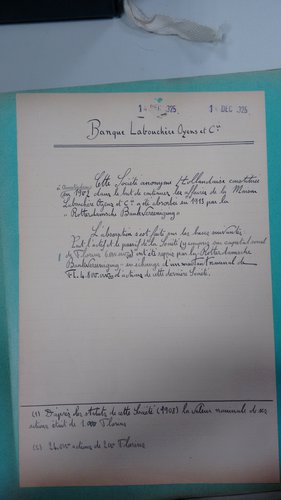 1 DEC 925 1 DEC 925
Banque Labouchère Oyens et Cie
Cette Société anonyme Hollandaise constituée
à Amsterdam
en dans le but de continuer les affaires de la Maison
Labouchère Oyens et Cie a été absorbée en par la
"Rotterdamsche Bankvereeniging"
L'absorption s'est faite sur les bases suivantes
Tout l'actif et le passif de la Société (y compris son capital social
de Florins ) ont été repris par la Rotterdamsche
Bankvereeniging en échange d'un montant nominal de
Fl. 4.800.000 d'actions de cette dernière Société.
(1) D'après les statuts de cette Société (1902) la valeur nominale de ses
actions était de 1.000 Florins
actions de 200 Florins